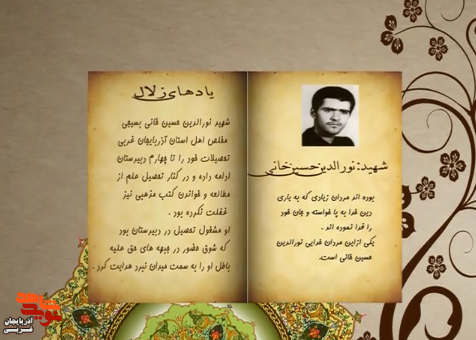 شهید: نورالدین حسین خانی
بوده اند مردان زیادی که به یاری
دین خدا به پا خواسته و جان خود
را فدا نموده اند .
یکی ازاین مردان خدایی نورالدین
حسین خانی است.
یادهای زلال
شهید نورالدین حسین خانی بسیجی
مخلص اهل استان آذربایجان غربی
تحصیلات خود را تا چهارم دبیرستان
ادامه داده و در کنار تحصیل علم از
مطالعه و خواندن کتب مذهبی نیز
غفلت نکرده بود .
او مشغول تحصیل در دبیرستان بود
که شوق حضور در جبهه های حق علیه
باطل او را به سمت میدان نبرد هدایت کرد .
نوید شاهد
آذربایجان
غربی